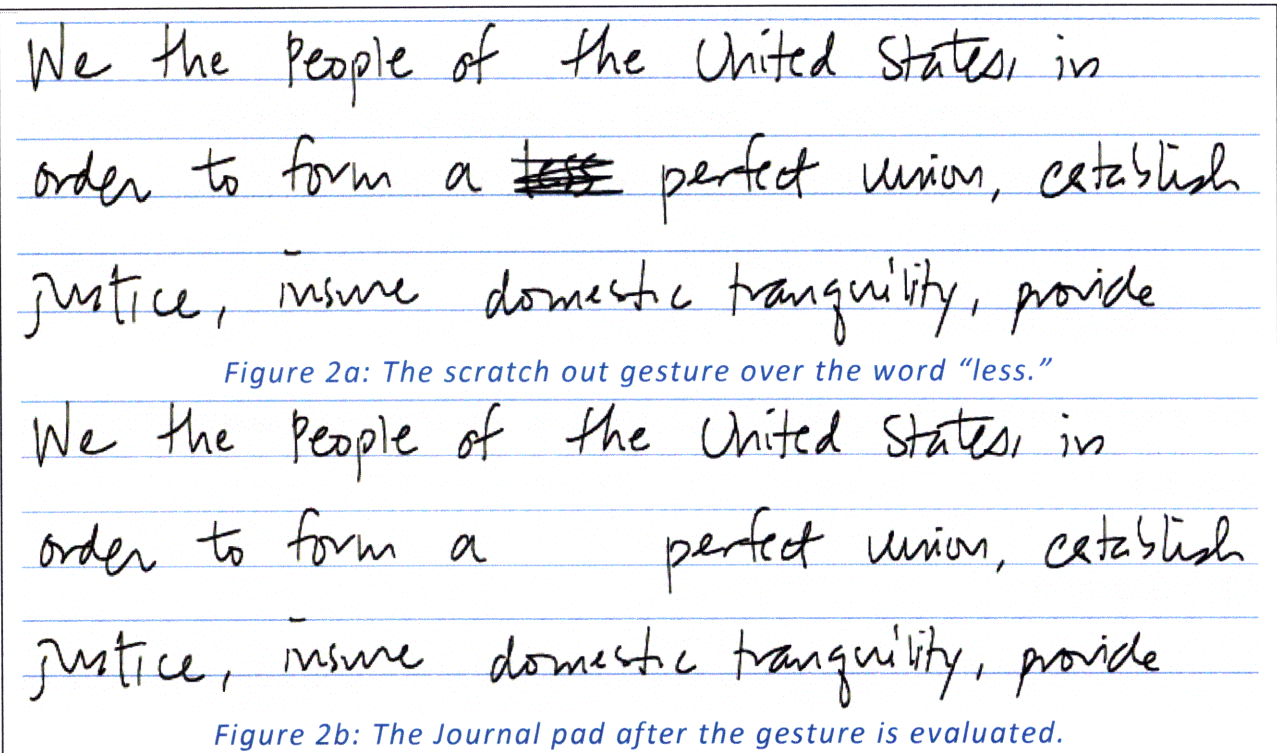 We the People of the United States, in
order to form a less perfect union, establish
justice, insure domestic tranquility, provide
Figure 2a: The scratch out gesture over the word “less.”
We the People of the United States, in
order to form a perfect union, establish
justice, insure domestic tranquility, provide
Figure 2b: The Journal pad after the gesture is evaluated.